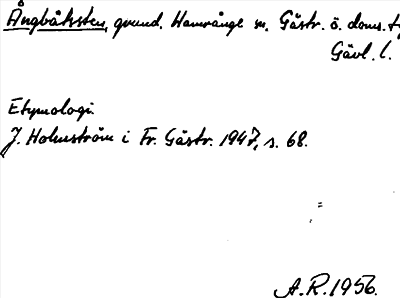 Ångbåksten, grund. Hamrånge sn. Gästr. ö. doms.
Gävl. l.
Etymologi.
J. Holmström i Fr. Gästr. 1947, s. 68.
A.R. 1956.